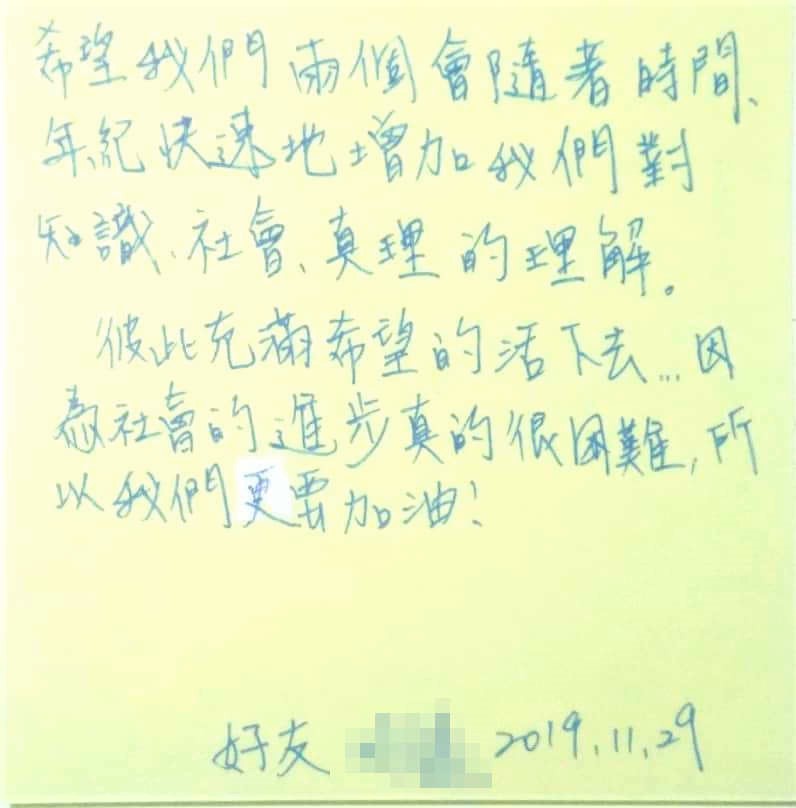 希望我們兩個會隨著時間、
年紀快速地增加我們對
知識、社會、真理的理解。
彼此充滿希望的活下去...因
為社會的進步真的很困難,所
以我們更要加油!
好友 2019.11.29